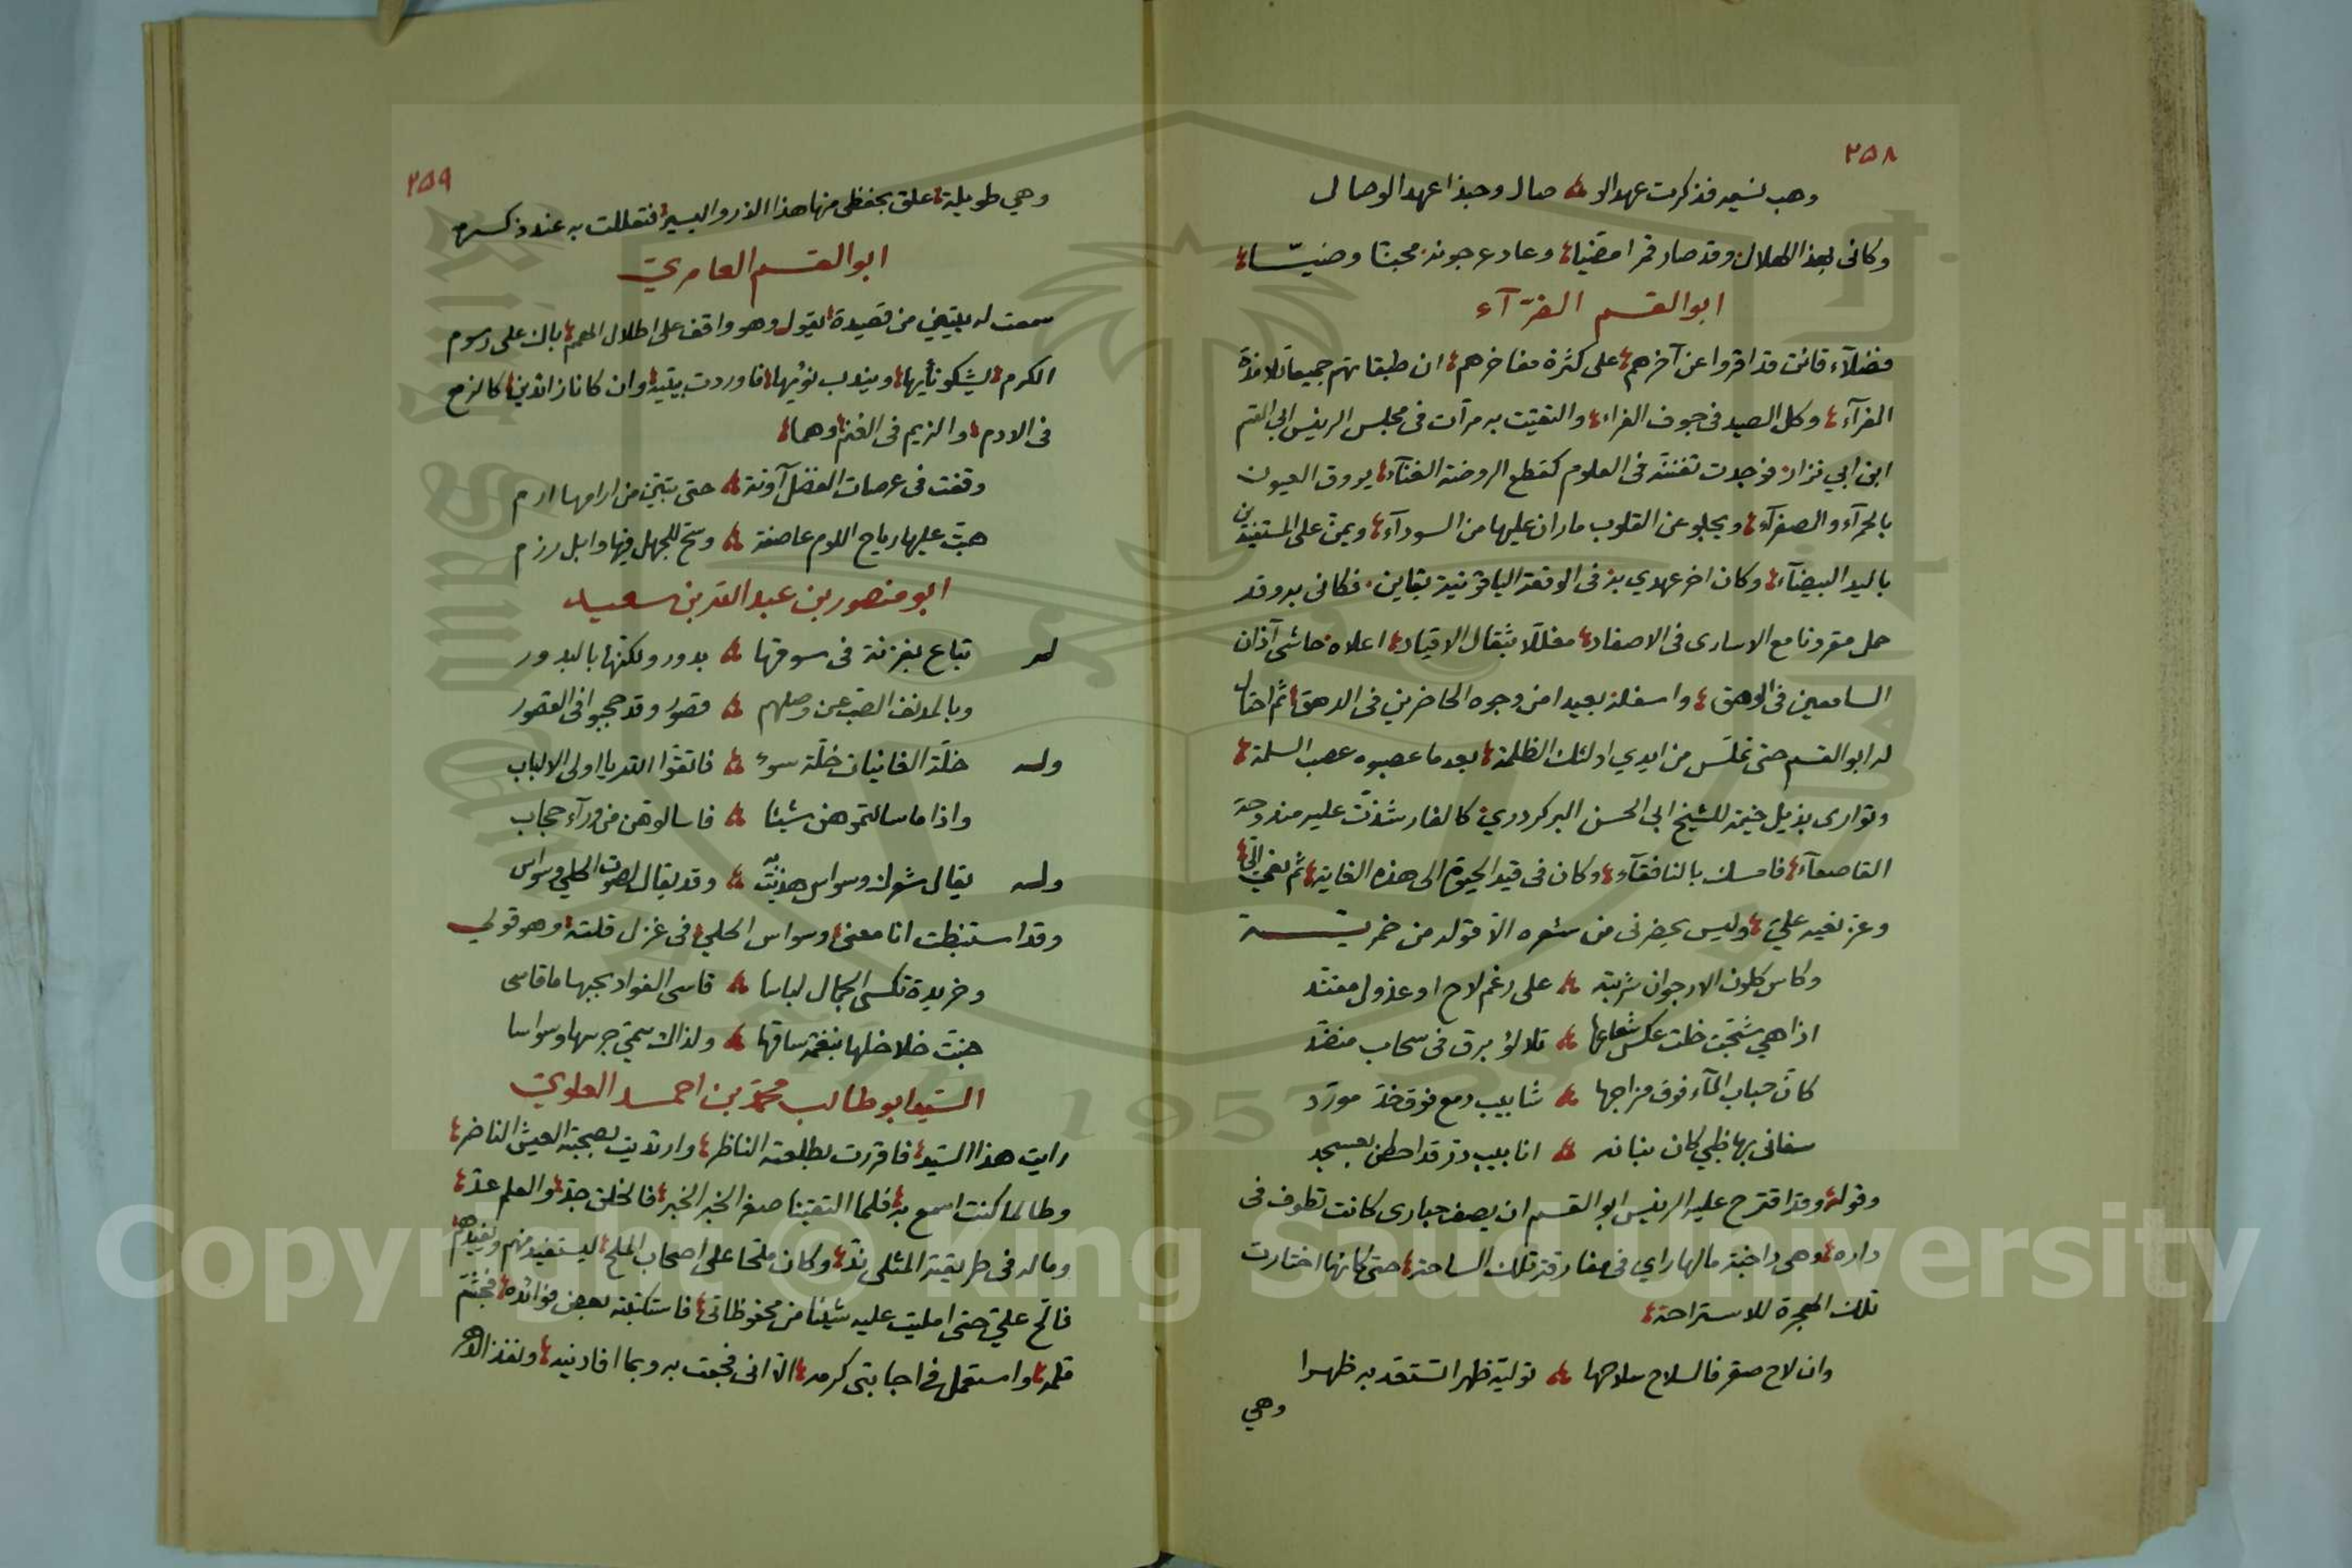 ٢٥٨
وهب نسيم فذكرت عهد الو صال وحبذا عهد الوصال
وكانى بهذا الهلال وقد صار قمرا مضيئا وعاد عرجونه محبنا وضيّئا
ابو القسم الفرّآء
فضلآء قائن قد اقروا عن آخرهم على كثرة مفاخرهم ان طبقاتهم جميعا تلامذة
الفرآء وكل الصيد فى جوف الفراء والتقيت به مرّات فى مجلس الرئيس ابي القسم
ابن ابي نزار فوجدت تفننه فى العلوم كقطع الروضة الغنآء يروق العيون
بالحمرآء والصفرآء ويجلو عن القلوب ماران عليها من السودآء ويمنّ على المستفيدين
باليد البيضآء وكان اخر عهدي به فى الوقعة الياقوتية بقاين فكانى به وقد
حمل مقرونا مع الاسارى فى الاصفاد مغللا بثقال الاقياد اعلاه حاشى آذان
السامعين فى الوهق واسفله بعيدا من وجوه الحاضرين فى الدهق ثم احتال
له ابو القسم حتى تملّس من ايدي اولئك الظلمة بعد ما عصبوه عصب السلمة
وتوارى بذيل خيمة للشيخ ابى الحسن البركردري كالفار شذت عليه مندوحة
القاصعآء فامسك بالنافقآء وكان فى قيد الحيوة الى هذه الغاية ثم نعي الىّ
وعز نعيه عليّ وليس يحضرنى من شعره الا قوله من خمرية
وكاس كلون الارجوان شربته على رغم لاح او عذول مفند
اذا هي شجّت خلت عكس شعاعها تلالؤ برق فى سحاب منضّد
كانّ حباب المآء فوق مزاجها شابيب دمع فوق خدّ مورّد
سقانى بها ظبي كان بنانه انابيب درّ قد احطن بعسجد
وقوله وقد اقترح عليه الرئيس ابو القسم ان يصف حبارى كانت تطوف فى
داره وهى داجنة مالها راي فى مفارقة تلك الساحة حتى كانها اختارت
تلك الحجرة للاستراحة
وان لاح صقر فالسلاح سلاحها توليه ظهرا تستقد به ظهرا
وهي
٢٥٩
وهي طويلة علق بحفظى منها هذا الذرو اليسير فتعللت به عند ذكره
ابو القسم العامريّ
سمعت له بيتين من قصيدة يقول وهو واقف على اطلال الهمم باك على رسوم
الكرم يشكو نأيها ويندب نؤيها فاوردت بيتيه وان كانا زائدين كالزمع
فى الادم والزيم فى الغنم وهما
وقفت فى عرصات الفضل آونة حتى تبيّن من ارامها ارم
هبّت عليها رياح اللوم عاصفة وسحّ للجهل فيها وابل رزم
ابو منصور بن عبد الله بن سعيد
له تباع بغزنة فى سوقها بدور ولكنها بالبدور
وبالمدنف الصبّ عن وصلهم قصور وقد حجبوا فى القصور
وله خلّة الغانيات خلّة سوء فاتقوا الله يا اولى الالباب
واذا ما سالتموهن شيئا فاسالوهنّ من ورآء حجاب
وله يقال شعرك وسواس هذيت به وقد يقال لصوت الحلي وسواس
وقد استنبطت انا معنى وسواس الحلي فى غزل قلته وهو قولي
وخريدة تكسى الجمال لباسا قاسى الفواد بحبها ما قاسى
جنّت خلاخلها بنغمة ساقها ولذاك سمّي جرسها وسواسا
السّيد ابو طالب محمد بن احمد العلويّ
رايت هذا السّيد فاقررت بطلعته الناظر وارتديت بصحبته العيش الناضر
وطالما كنت اسمع به فلما التقينا صغر الخبر الخبر فالخلق جدّ والعلم عدّ
وماله فى طريقته المثلى ندّ وكان ملحّا على اصحاب الملح ليستفيد منهم ويفيدهم
فالحّ عليّ حتى امليت عليه شيئا من محفوظاتى فاستكتبته بعض فوائده فجشّم
قلمه واستعمل فى اجابتى كرمه الا انى فجعت به وبما افادنيه ونفذ الدهر